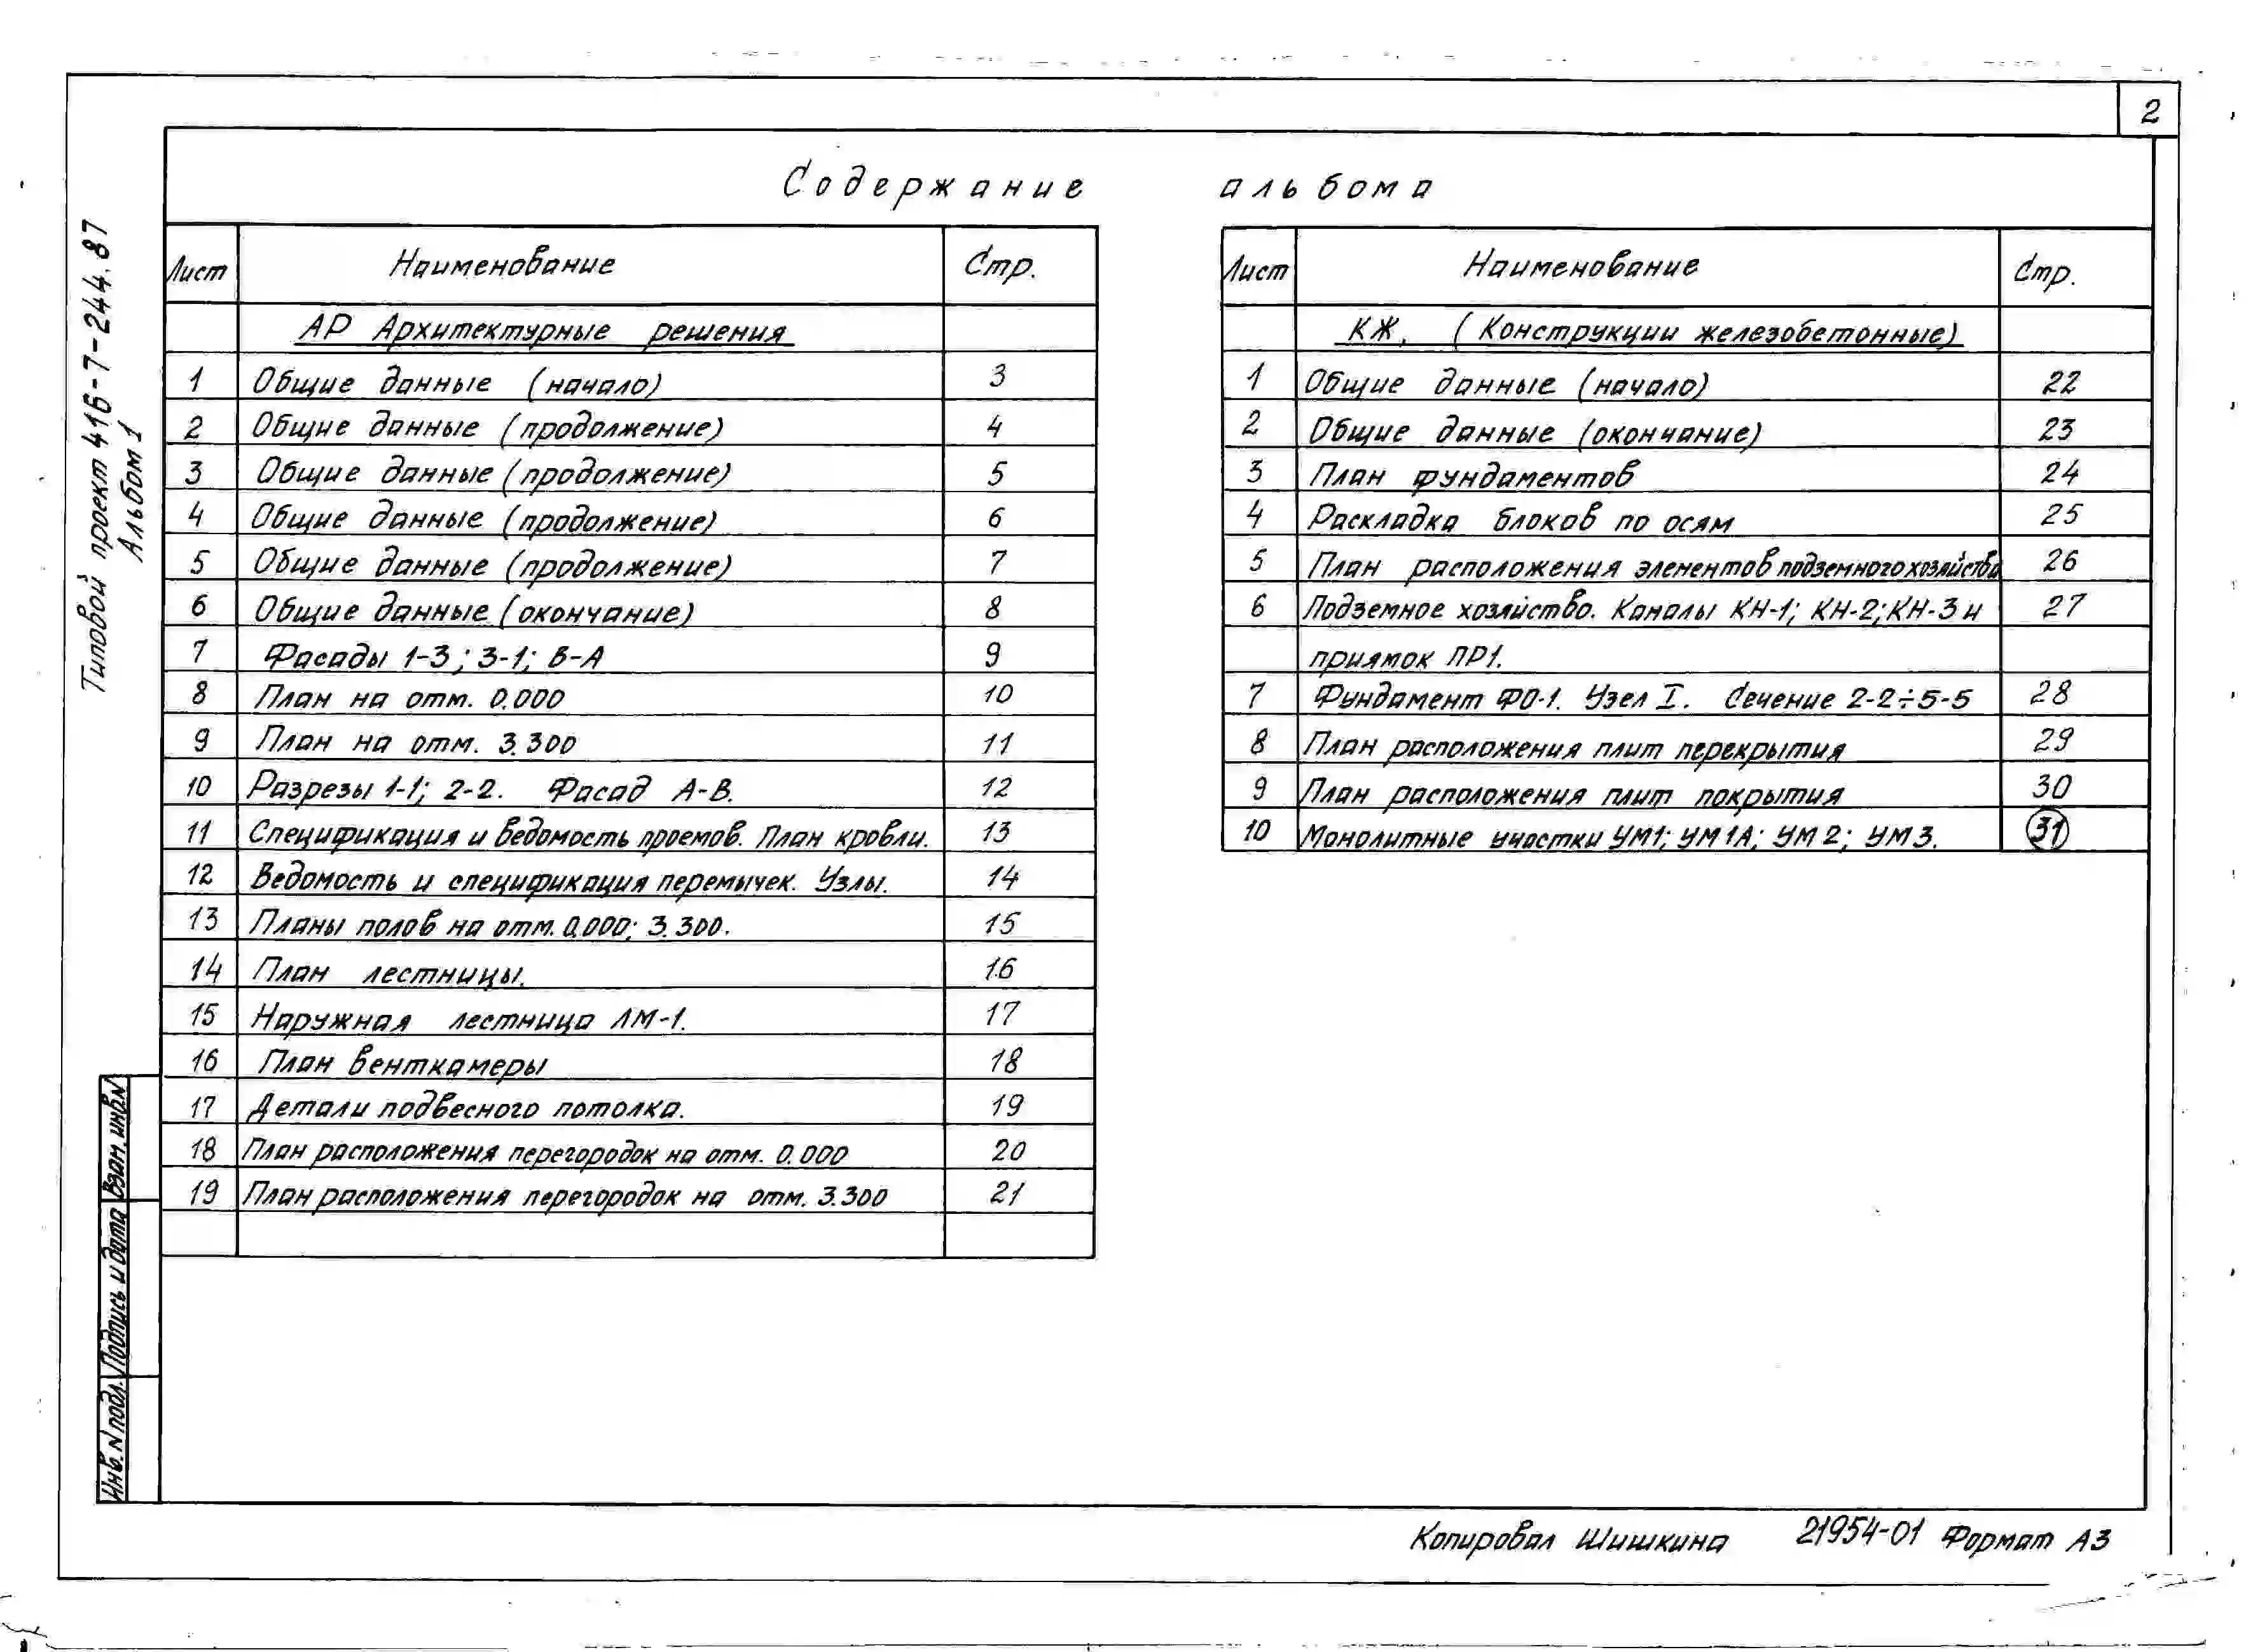 2
Содержание альбома
Типовой проект 416-7-244.87
Альбом 1
Лист Наименование Стр.
АР Архитектурные решения
1 Общие данные (начало) 3
2 Общие данные (продолжение) 4
3 Общие данные (продолжение) 5
4 Общие данные (продолжение) 6
5 Общие данные (продолжение) 7
6 Общие данные (окончание) 8
7 Фасады 1-3; 3-1; В-А 9
8 План на отм. 0.000 10
9 План на отм. 3.300 11
10 Разрезы 1-1; 2-2. Фасад А-В. 12
11 Спецификация и ведомость проемов. План кровли. 13
12 Ведомость и спецификация перемычек. Узлы. 14
13 Планы полов на отм. 0.000; 3.300. 15
14 План лестницы. 16
15 Наружная лестница ЛМ-1. 17
16 План венткамеры 18
17 Детали подвесного потолка. 19
18 План расположения перегородок на отм. 0.000 20
19 План расположения перегородок на отм. 3.300 21
Лист Наименование Стр.
КЖ, (Конструкции железобетонные)
1 Общие данные (начало) 22
2 Общие данные (окончание) 23
3 План фундаментов 24
4 Раскладка блоков по осям 25
5 План расположения элементов подземного хозяйства 26
6 Подземное хозяйство. Каналы КН-1; КН-2; КН-3 и 27
приямок ПР1.
7 Фундамент ФО-1. Узел I. Сечение 2-2÷5-5 28
8 План расположения плит перекрытия 29
9 План расположения плит покрытия 30
10 Монолитные участки УМ1; УМ1А; УМ2; УМ3. 31
Взам. инв.N
Подпись и дата
Инв. N подл.
Копировал Шишкина 21954-01 Формат А3